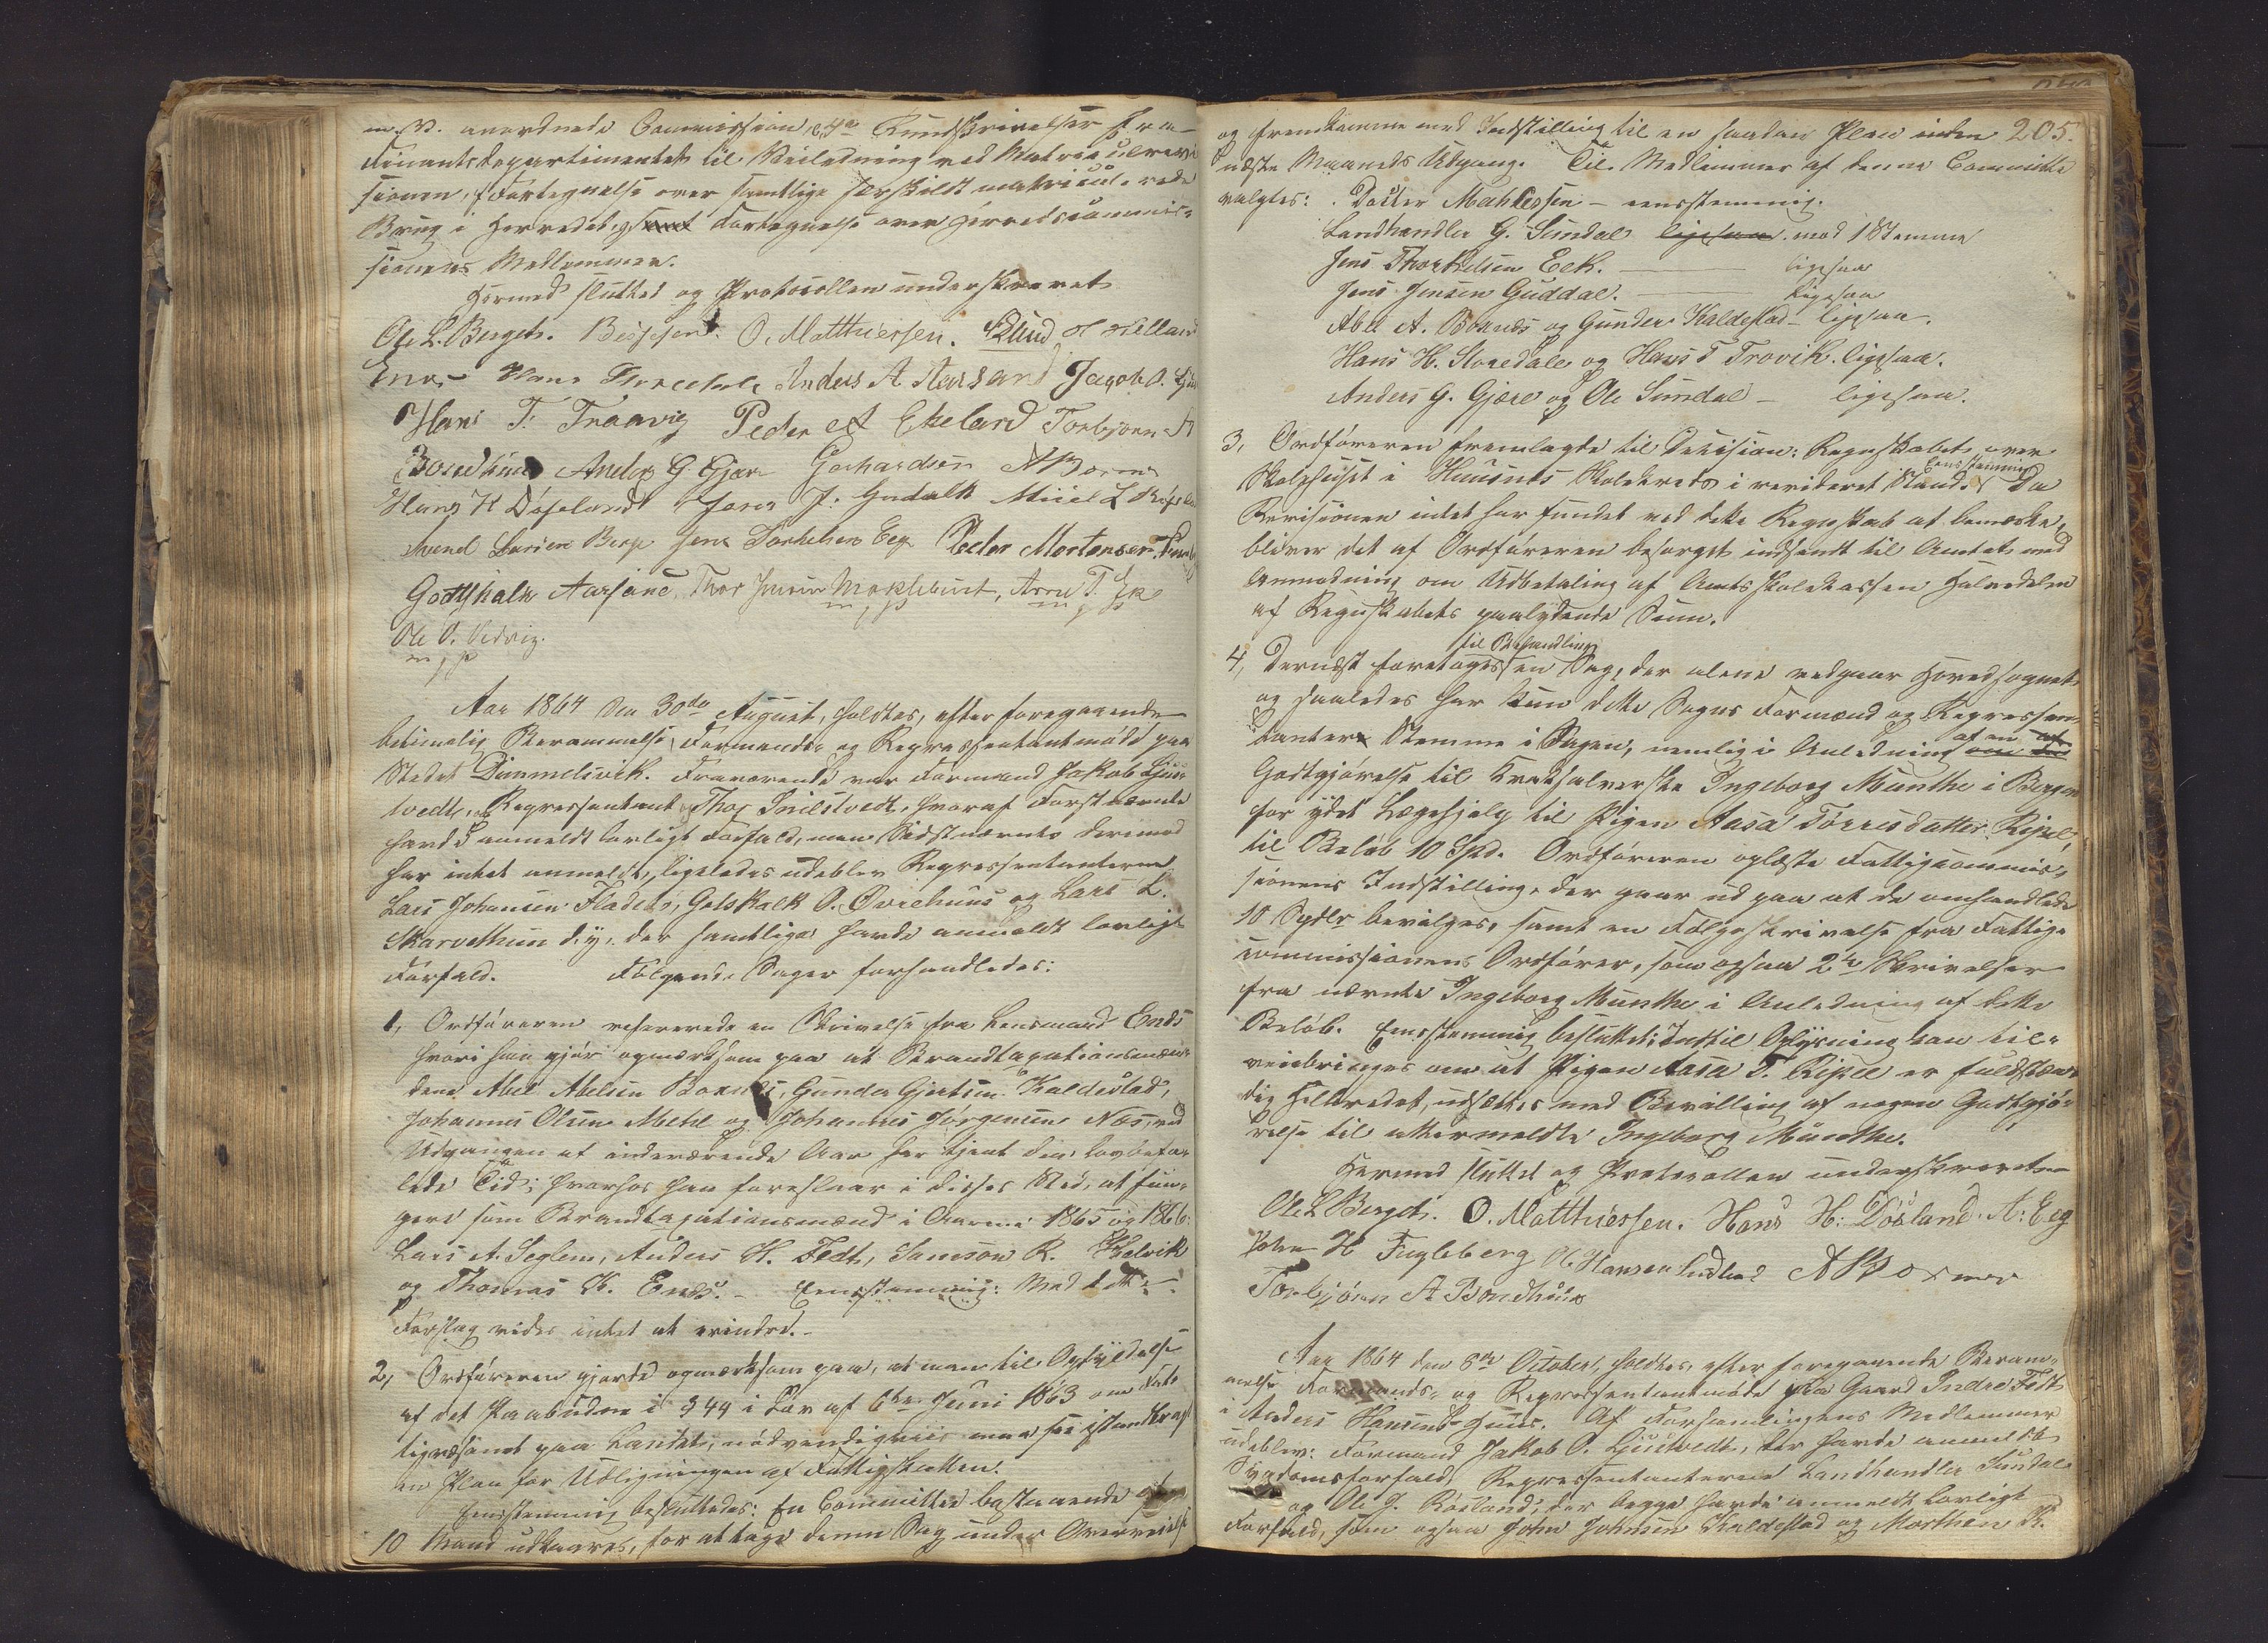 m. V. anordnede Commission, 4de Rundskrivelser fra
Finantsdepartementet til Veiledning ved Matriculrevi
sionen, Fortegnelse over samtlige særskildt matriculerede
Brug i Herredet, og samt Fortegnelse over Herredscommis-
sionens Medlemmer.
Hermed sluttet og Protocollen underskrevet
Ole L. Berget. O. Matthiessen. Lund
Enes Hans Anders A Aarsand Jacob O.
Hans T. Traavig Peder A Ekeland Torbjørn A
Bondhuus Anders G Gjære Gerhardsen
Hans H Døsland Jens J. Guddalt Miiel L
Svend Larsen Berge Jens Torkelsen Eeg Peder Mortensen
Godtskalk Aarsand, Thor Iversen Møklebust, Arne T.
m, p m, p
Ole O. Vedvig.
m, p
Aar 1864 den 30de August, holdtes, efter foregaaende
betimelig Berammelse, Formands- og Repræsentantmøde paa
Stedet Dimmelsvik. Fraværende var Formand Jakob Ljus-
tvedt, og Repræsentant Thor Snilstvedt, hvoraf Førstnævnte
havde anmeldt lovligt Forfald, men Sidstnævnte derimod
har intet anmeldt, ligeledes udeblev Repræsentanterne
Lars Johansen Fladebø, Gotskalk O. Øvrehuus og Lars L.
Skarvethun d. y. der samtlige havde anmeldt lovligt
Forfald. Følgende Sager forhandledes:
1, Ordføreren refererede en Skrivelse fra Lensmand Enes
hvori han gjør opmærksom paa at Brandtaxationsmæn-
dene Abel Abelsen Bogsnes, Gunder Gjertsen Kaldestad,
Johannes Olsen Mehl og Johannes Jørgensen Næs, ved
Udgangen af indeværende Aar har tjent den lovbefa-
lede Tid; hvorhos han foreslaar i disses Sted, at fun-
gere som Brandtaxationsmænd i Aarene 1865 og 1866:
Lars A. Seglem, Anders H. Fedt, Samson R. Helvik
og Thomas K. Enes. – Eenstemmig: Mod dette
Forslag vides intet at erindre. –
2, Ordføreren gjorde opmærksom paa, at man til Opfyldelse
af det Paabudne i § 44 i Lov af 6te Juni 1863 om Fat-
tigvæsenet paa Landet, nødvendigviis maa faa istandbragt
en Plan for Udligningen af Fattigskatten.
Eenstemmig besluttedes: En Committee bestaaende af
10 Mand udkaares, for at tage denne Sag under Overveielse
205.
og fremkomme med Indstilling til en saadan Plan inden
næste Maaneds Udgang. Til Medlemmer af denne Committee
valgtes: Docter Mathiessen – eenstemmig.
Landhandler G. Sundal ligesaa mod 1 Stemme
Jens Thorkelsen Eek. ligesaa
Jens Jensen Guddal. ligesaa
Abel A. Bogsnes og Gunder Kaldestad – ligesaa.
Hans H. Storedale og Hans T Trovik. ligesaa.
Anders G. Gjære og Ole Sundal – ligesaa.
3, Ordføreren fremlagde til Decision: Regnskabet over
Skolehuset i Huusnes Skolekreds i revideret Stand. Eenstemmig Da
Revisionen intet har fundet ved dette Regnskab at bemærke,
bliver det af Ordføreren besørget indsendt til Amtet med
Anmodning om Udbetaling af Amtsskolekassen Halvdelen
af Regnskabets paalydende Sum.
til Behandling
4, Dernæst foretoges en Sag, der alene vedgaar Hovedsognet
og saaledes har kun dette Sogns Formænd og Repræsen-
tanter Stemme i Sagen, nemlig i Anledning af en
Godtgjørelse til Kvaksalverske Ingeborg Munthe i Bergen
for ydet Lægehjelp til Pigen Aasa Tørresdatter Ripel,
til Beløb 10 Spd. Ordføreren oplæste Fattigcommis-
sionens Indstilling, der gaar ud paa at de omhandlede
10 Spdlr bevilges, samt en Følgeskrivelse fra Fattig-
commissionens Ordfører, som ogsaa 2de Skrivelser
fra nævnte Ingeborg Munthe i Anledning af dette
Beløb. Eenstemmig besluttet: Indtil Oplysning kan til-
veiebringes om at Pigen Aasa T. Ripel er fuldstæn-
dig helbredet, udsættes med Bevilling af nogen Godtgjø-
relse til ettermeldte Ingeborg Munthe.
Hermed sluttet og Protocollen underskrevet
Ole L Berget. O. Matthiessen. Hans H: Døsland. A: Eeg
John H Fugleberg O. Hansen
Torbjørn A Bondhuus
Aar 1864 den 8de October, holdtes, efter foregaaende Beram-
melse Formands- og Repræsentantmøde paa Gaard Indre Fedt
i Anders Hansens Huus. Af Forsamlingens Medlemmer
udeblev: Formand Jakob O. Ljustvedt, der havde anmeldt
Sygdomsforfald, Repræsentanterne Landhandler Sundal
og Ole J. Røsland, der begge havde anmeldt lovligt
Forfald, som ogsaa John Johnsen Kaldestad og Morthen K.